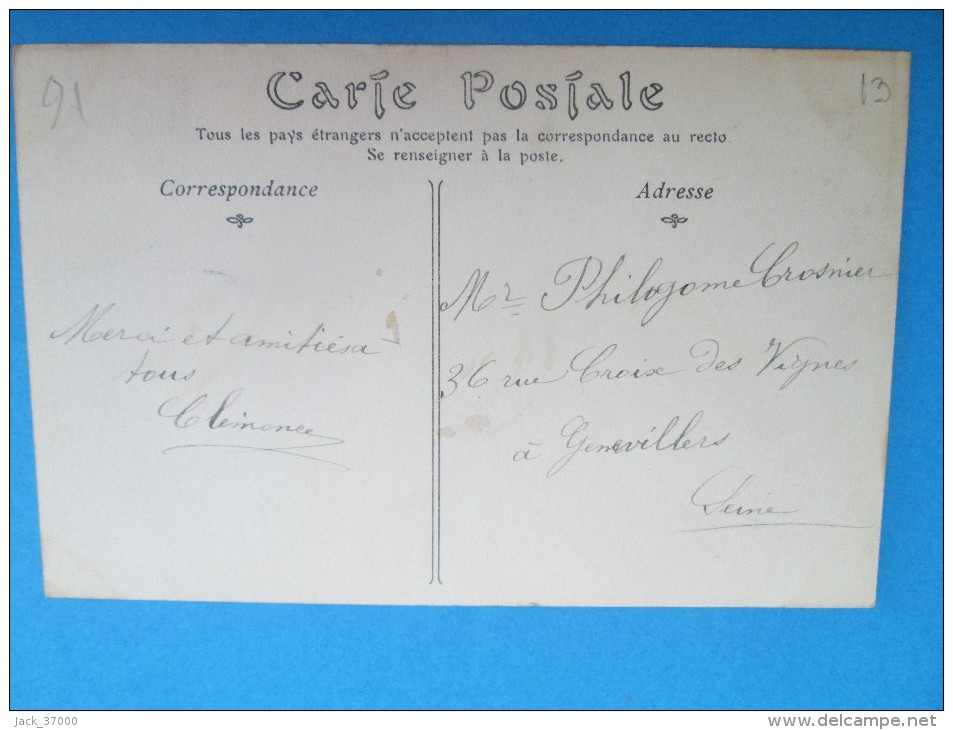 91
13
Carte Postale
Tous les pays étrangers n'acceptent pas la correspondance au recto.
Se renseigner à la poste.
Correspondance
Merci et amitiés à
tous
Clemence
Adresse
Mr Philogome Crosnier
36 rue Croix des Vignes
à Genevillers
Seine
jack_37000
www.delcampe.net